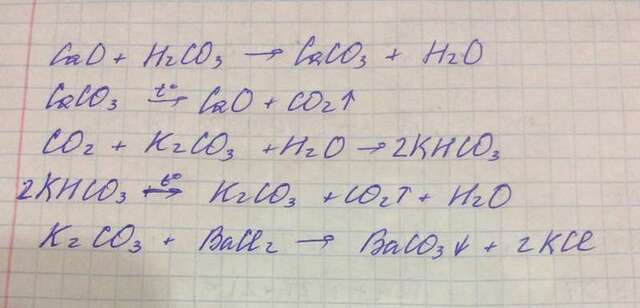 CaO + H₂CO₃ → CaCO₃ + H₂O
CaCO₃ ⇌ t° CaO + CO₂↑
CO₂ + K₂CO₃ + H₂O → 2KHCO₃
2KHCO₃ ⇌ t° K₂CO₃ + CO₂↑ + H₂O
K₂CO₃ + BaCl₂ → BaCO₃↓ + 2KCl